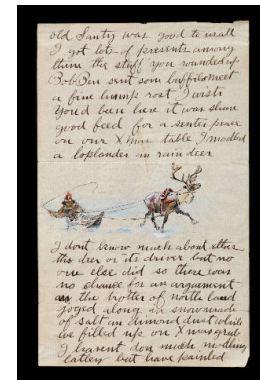 old Santy was good to us all
I got lots of presents among
them the stuff you rounded up
Bob Ben sent som buffilo meet
a fine hump rost I wish
you'd been here it was shure
good feed for a senter peace
on our Xmas table I modled
a loplander an rain deer
I dont know much about ether
the deer or its driver but no
one else did so there was
no chance for an argument
as the trotter of north land
joged along in snow made
of salt an dimond dust while
we filled up on Xmas grub
I havent don much modling
lattey but have painted